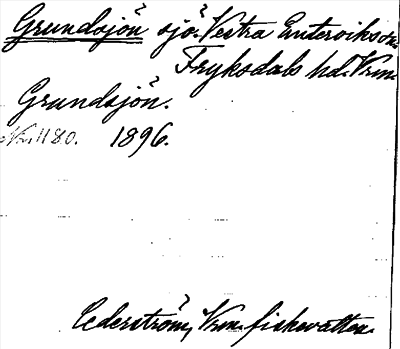 Grundsjön sjö. Vestra Emtervik sn.
Fryksdals hd. Vrm.
Grundsjön.
Nr. 1180. 1896.
Cederström, Vrm. fiskevatten.